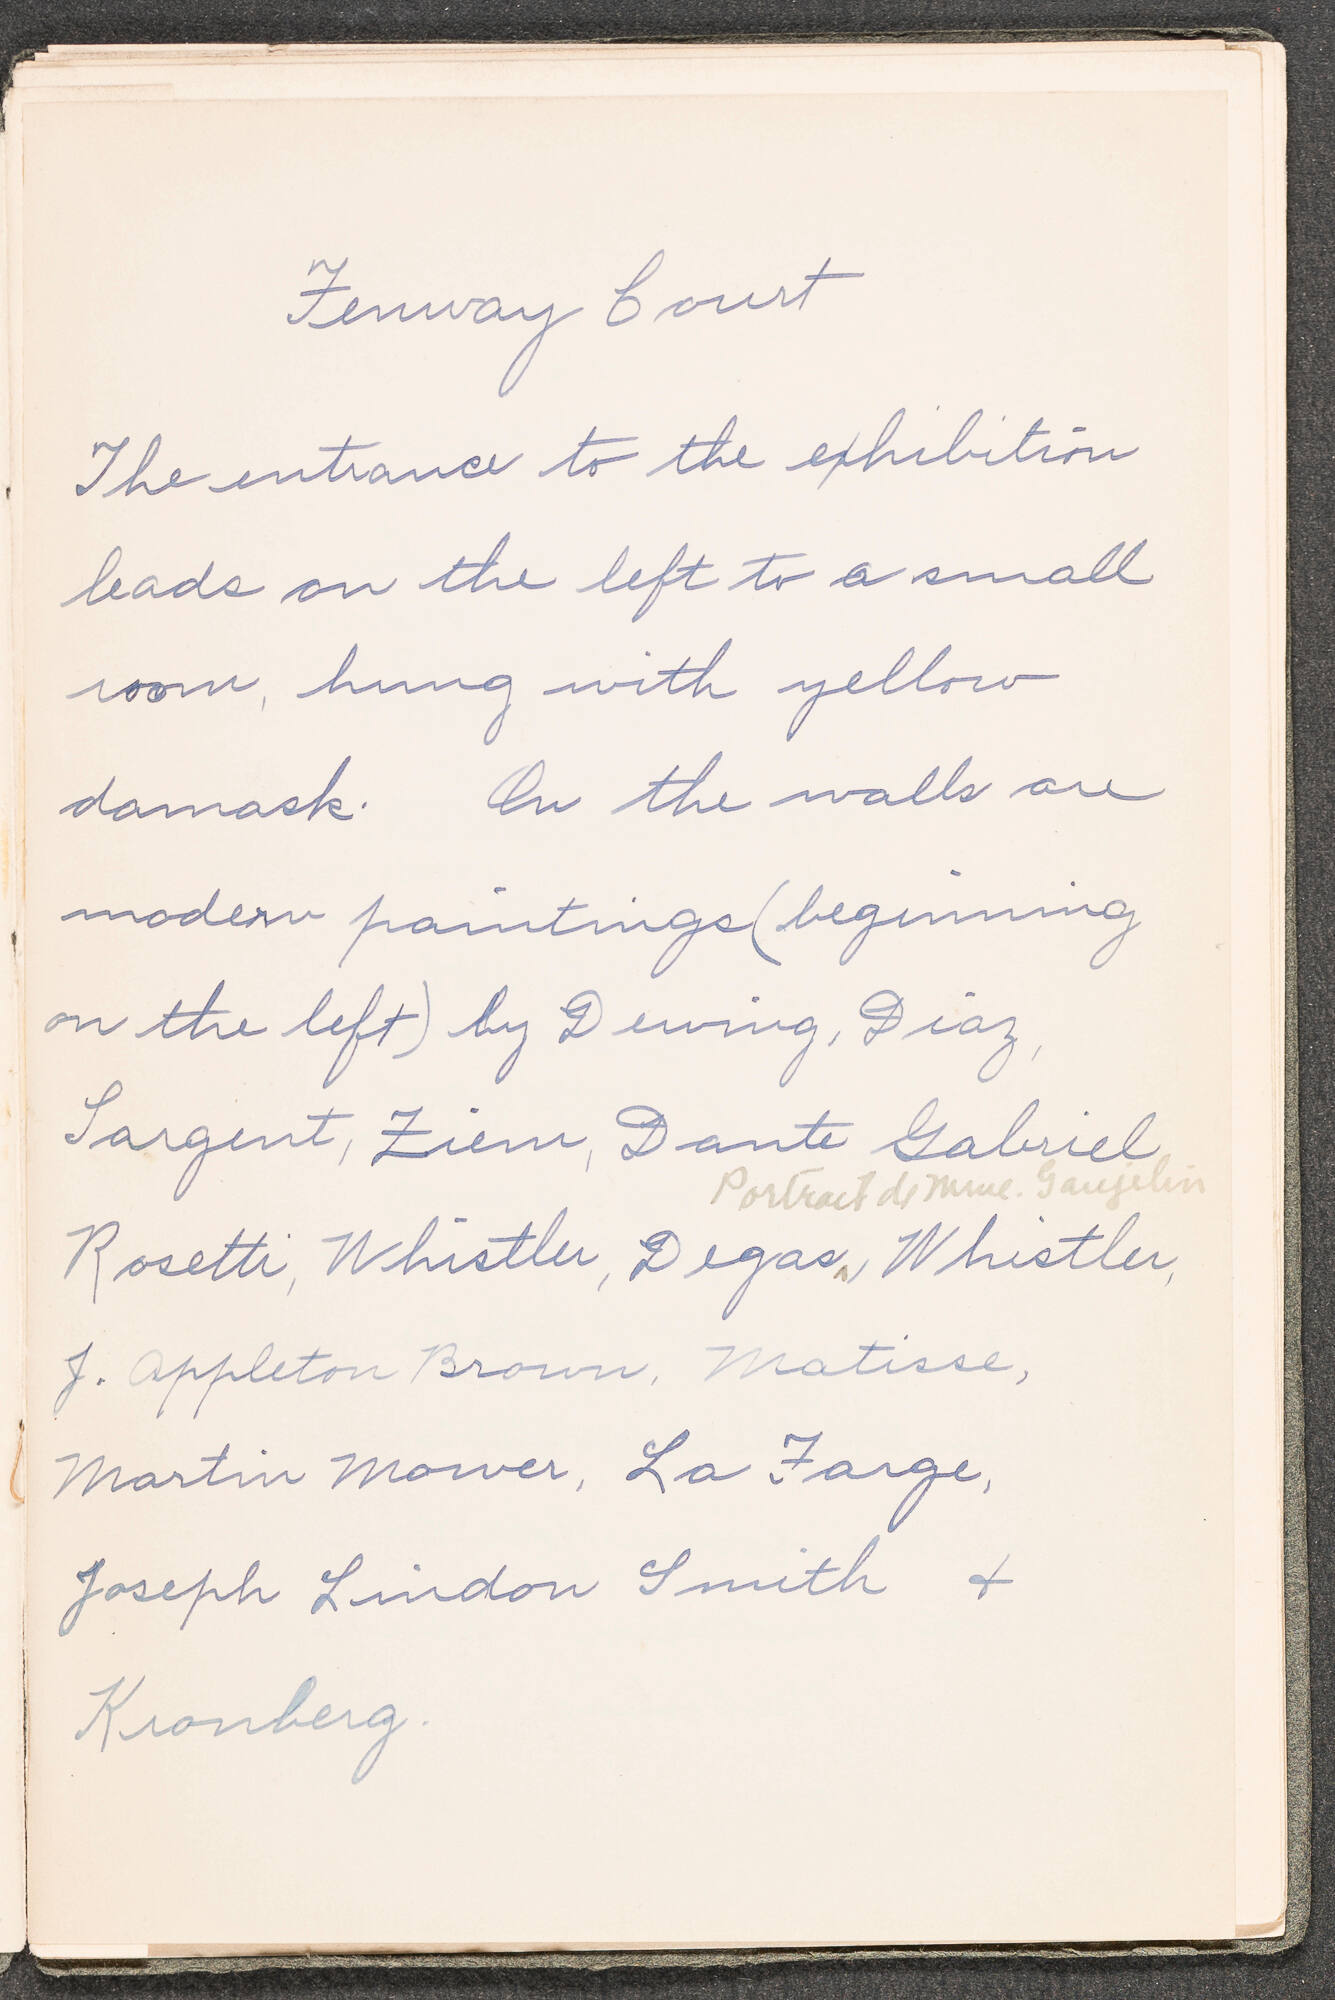 Fenway Court
The entrance to the exhibition
leads on the left to a small
room, hung with yellow
damask. On the walls are
modern paintings (beginning
on the left) by Dewing, Diaz,
Sargent, Ziem, Dante Gabriel
Portrait de Mme. Gaujelin
Rosetti, Whistler, Degas, Whistler,
J. Appleton Brown, Matisse,
Martin Mower, La Farge,
Joseph Lindon Smith &
Kronberg.